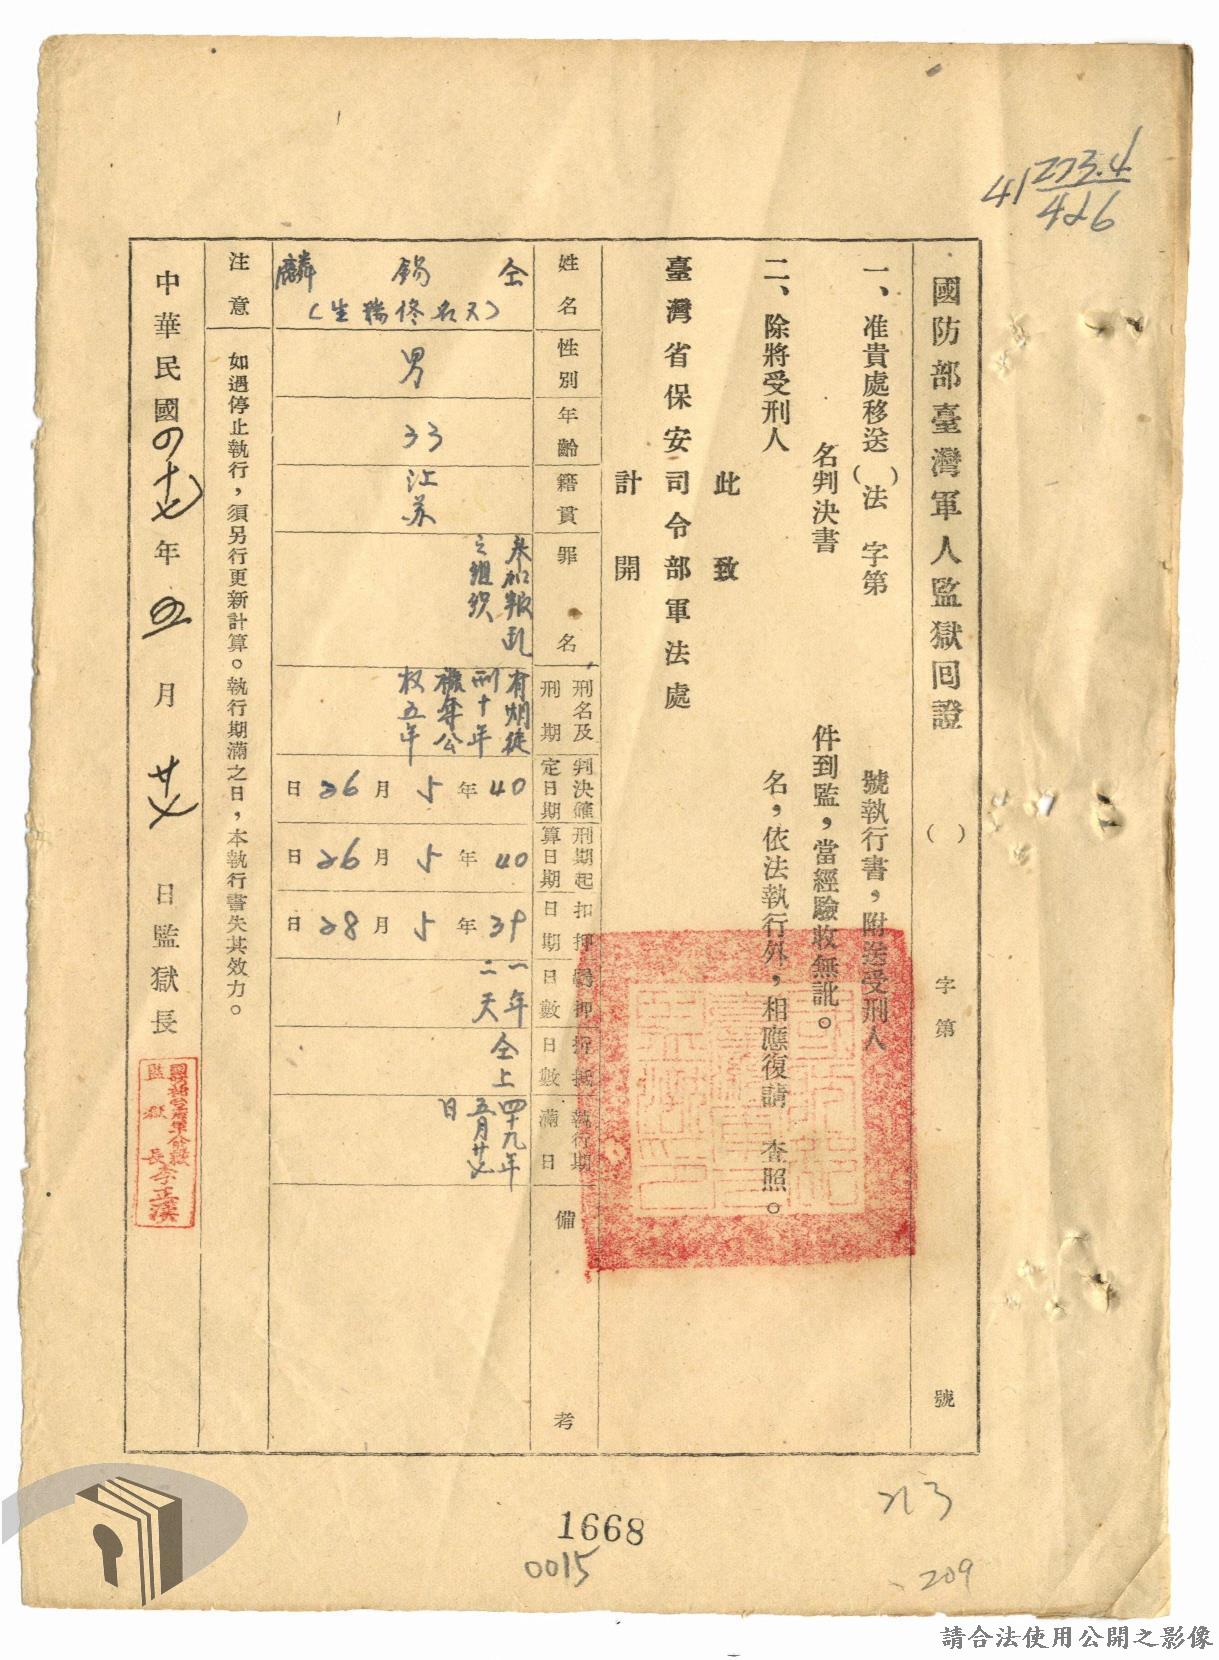 41 273.4/426
國防部臺灣軍人監獄回證 ( ) 字第 號
一、准貴處移送(法)字第 號執行書，附送受刑人
名判決書 件到監，當經驗收無訛。
二、除將受刑人 名，依法執行外，相應復請 查照。
此致
臺灣省保安司令部軍法處
計開
姓名 仝錫麟
(又名佟瑞生)
性別 男
年齡 33
籍貫 江苏
罪名 參加叛乱
之組织
刑名及刑期 有期徒
刑十年
褫奪公
权五年
判決確定日期 40年5月26日
刑期起算日期 40年5月26日
扣押日期 39年5月28日
羈押日數 一年
二天
折抵日數 仝上
執行期滿日 四十九年
五月廿四
日
備考
注意 如遇停止執行，須另行更新計算。執行期滿之日，本執行書失其效力。
中華民國四十七年 月 日監獄長
監獄長李正漢
213
1668
0015
209
請合法使用公開之影像